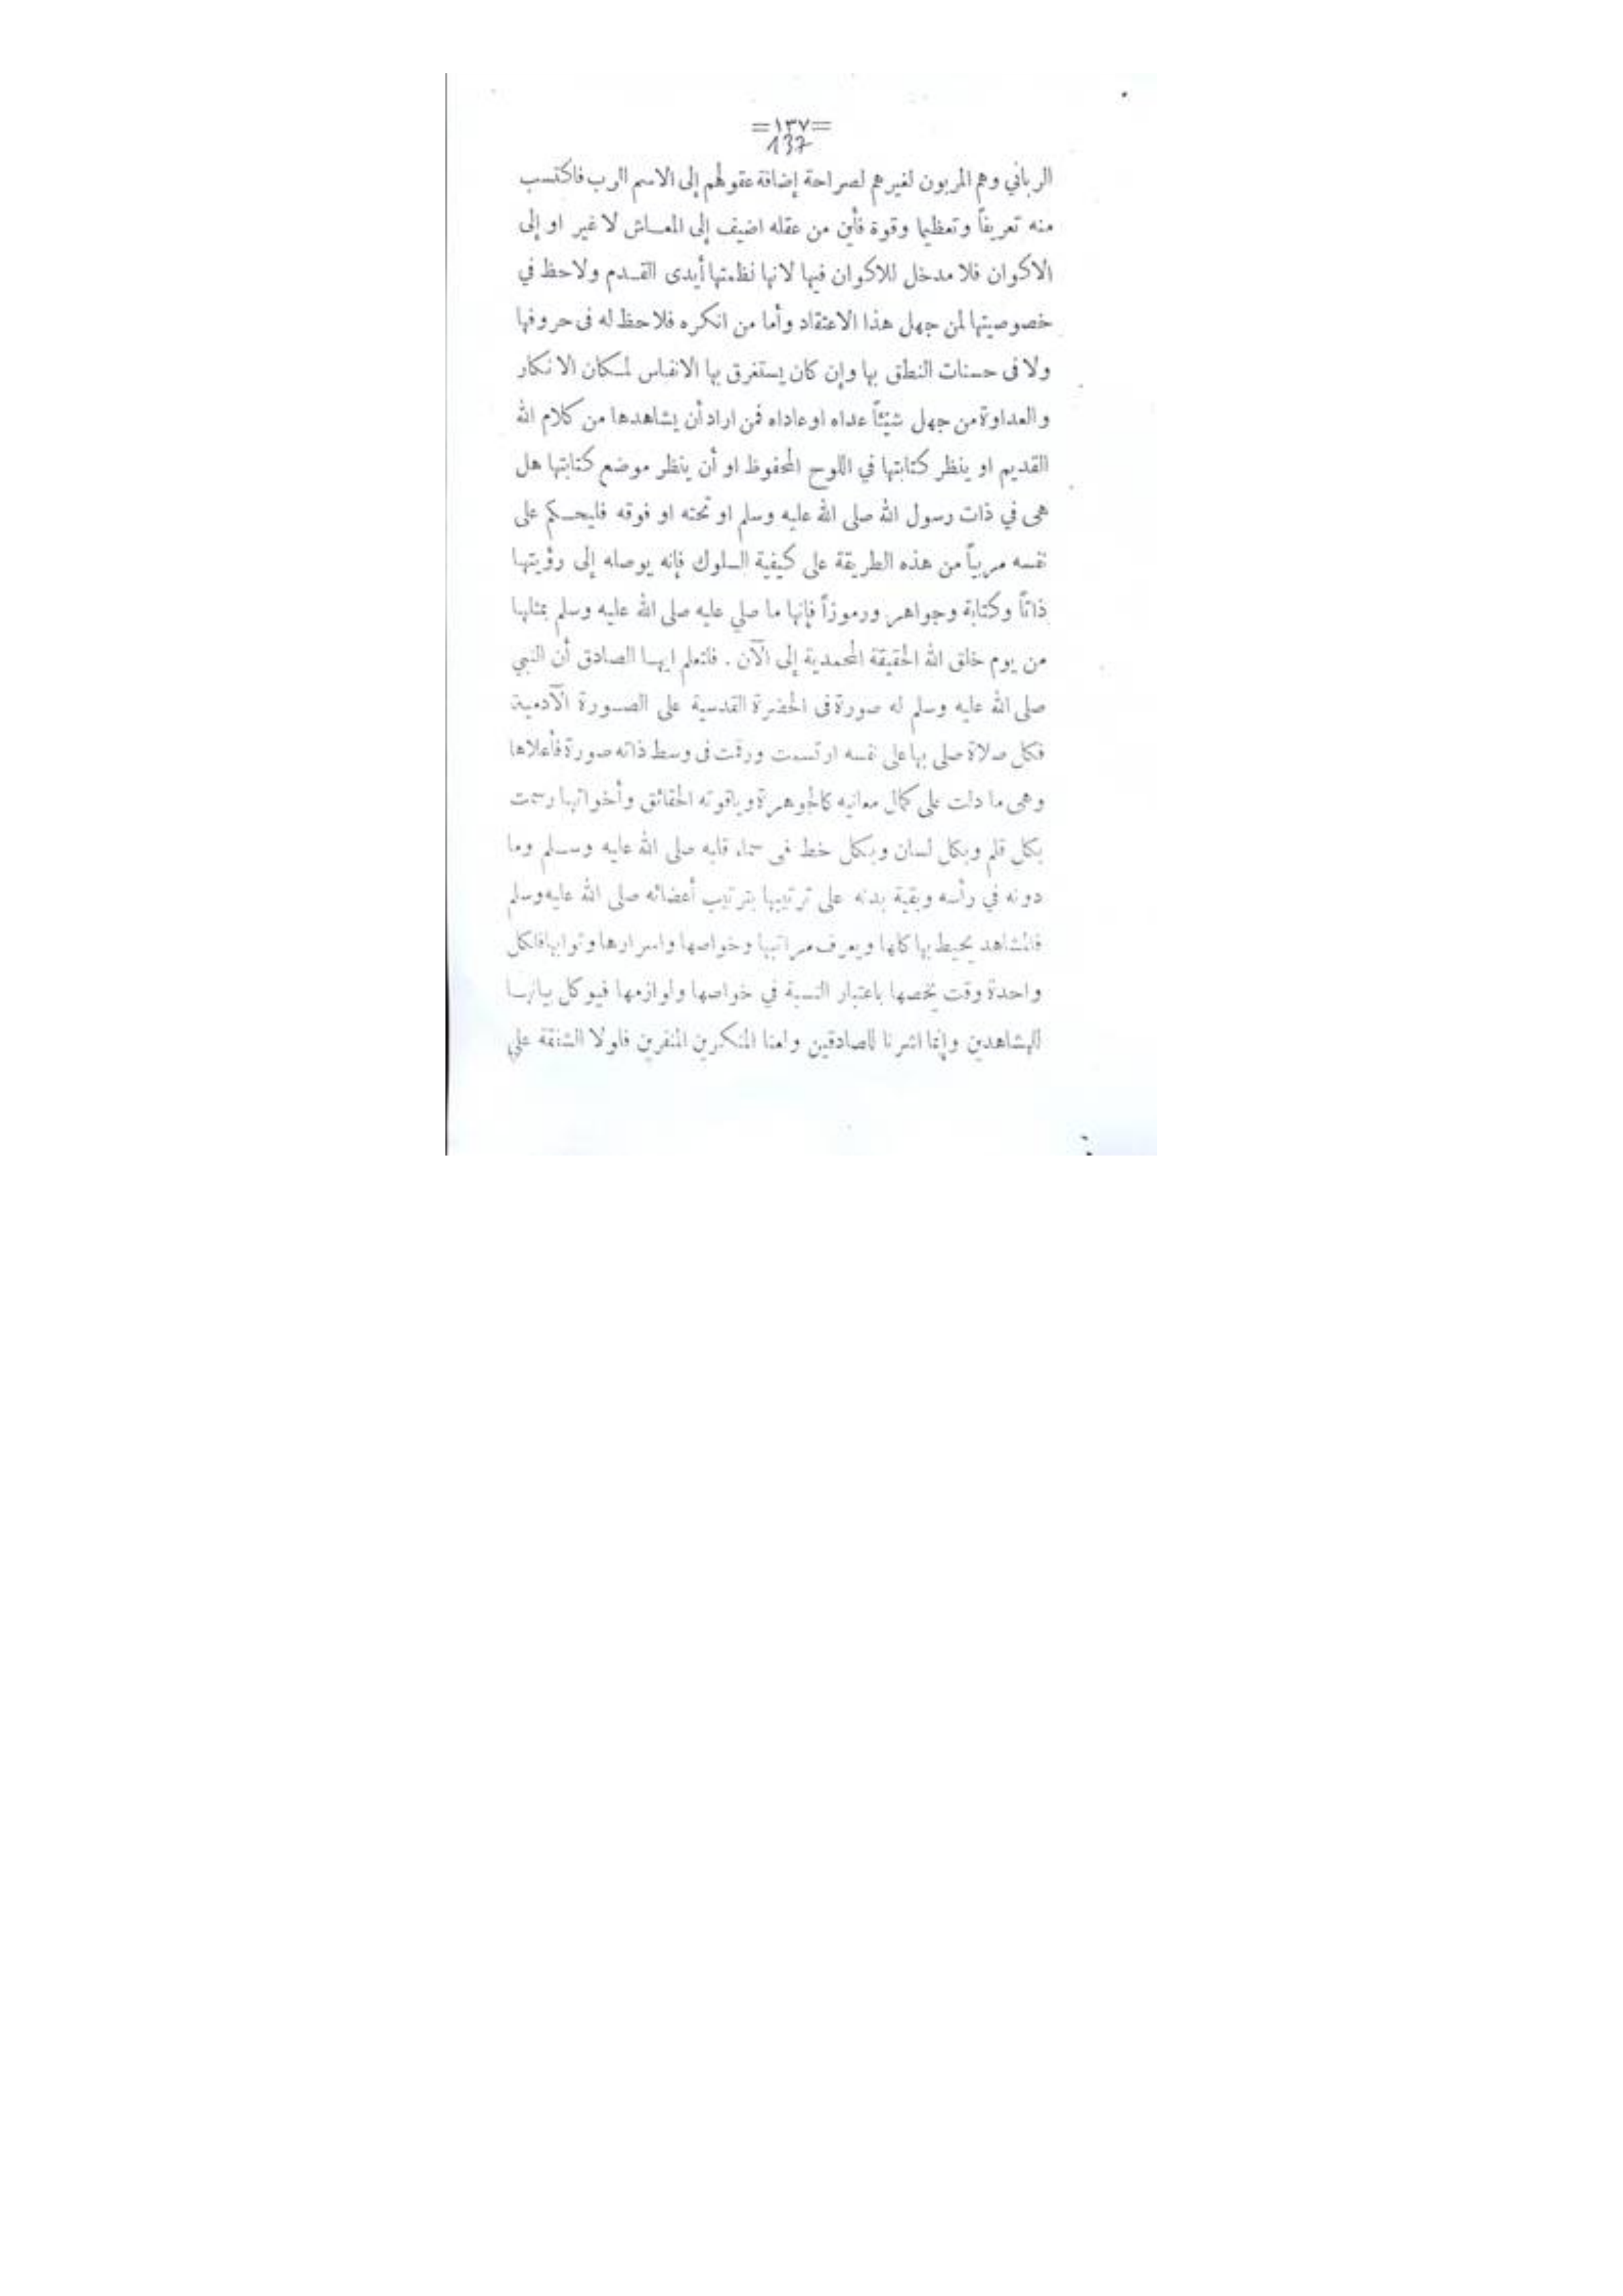 =١٣٧=
137
الرباني وهم المربون لغيرهم لصراحة إضافة عقولهم إلى الاسم الرب فاكتسب
منه تعريفاً وتعظيما وقوة فأين من عقله اضيف إلى المعاش لا غير او إلى
الاكوان فلا مدخل للاكوان فيها لانها نظمتها أيدى القدم ولا حظ في
خصوصيتها لمن جهل هذا الاعتقاد وأما من انكره فلا حظ له فى حروفها
ولا فى حسنات النطق بها وإن كان يستغرق بها الانفاس لمكان الانكار
والعداوة من جهل شيئاً عداه او عاداه فمن اراد أن يشاهدها من كلام الله
القديم او ينظر كتابتها في اللوح المحفوظ او أن ينظر موضع كتابتها هل
هى في ذات رسول الله صلى الله عليه وسلم او تحته او فوقه فليحكم على
نفسه مربياً من هذه الطريقة على كيفية السلوك فإنه يوصله إلى رؤيتها
ذاتاً وكتابة وجواهر ورموزاً فإنها ما صلي عليه صلى الله عليه وسلم بمثلها
من يوم خلق الله الحقيقة المحمدية إلى الآن . فلتعلم ايها الصادق أن النبي
صلى الله عليه وسلم له صورة فى الحضرة القدسية على الصورة الآدمية
فكل صلاة صلى بها على نفسه ارتسمت ورقمت فى وسط ذاته صورة فأعلاها
وهى ما دلت على كمال معانيه كالجوهرة وياقوته الحقائق وأخواتها رسمت
بكل قلم وبكل لسان وبكل خط فى سماء قلبه صلى الله عليه وسلم وما
دونه في رأسه وبقية بدنه على ترتيبها بترتيب أعضائه صلى الله عليه وسلم
فالمشاهد يحيط بها كلها ويعرف مراتبها وخواصها واسرارها وثوابها فلكل
واحدة وقت يخصها باعتبار النسبة في خواصها ولوازمها فيوكل بيانها
للمشاهدين وإنما اشرنا للصادقين ولعنا المنكرين المنفرين فلولا الشفقة على